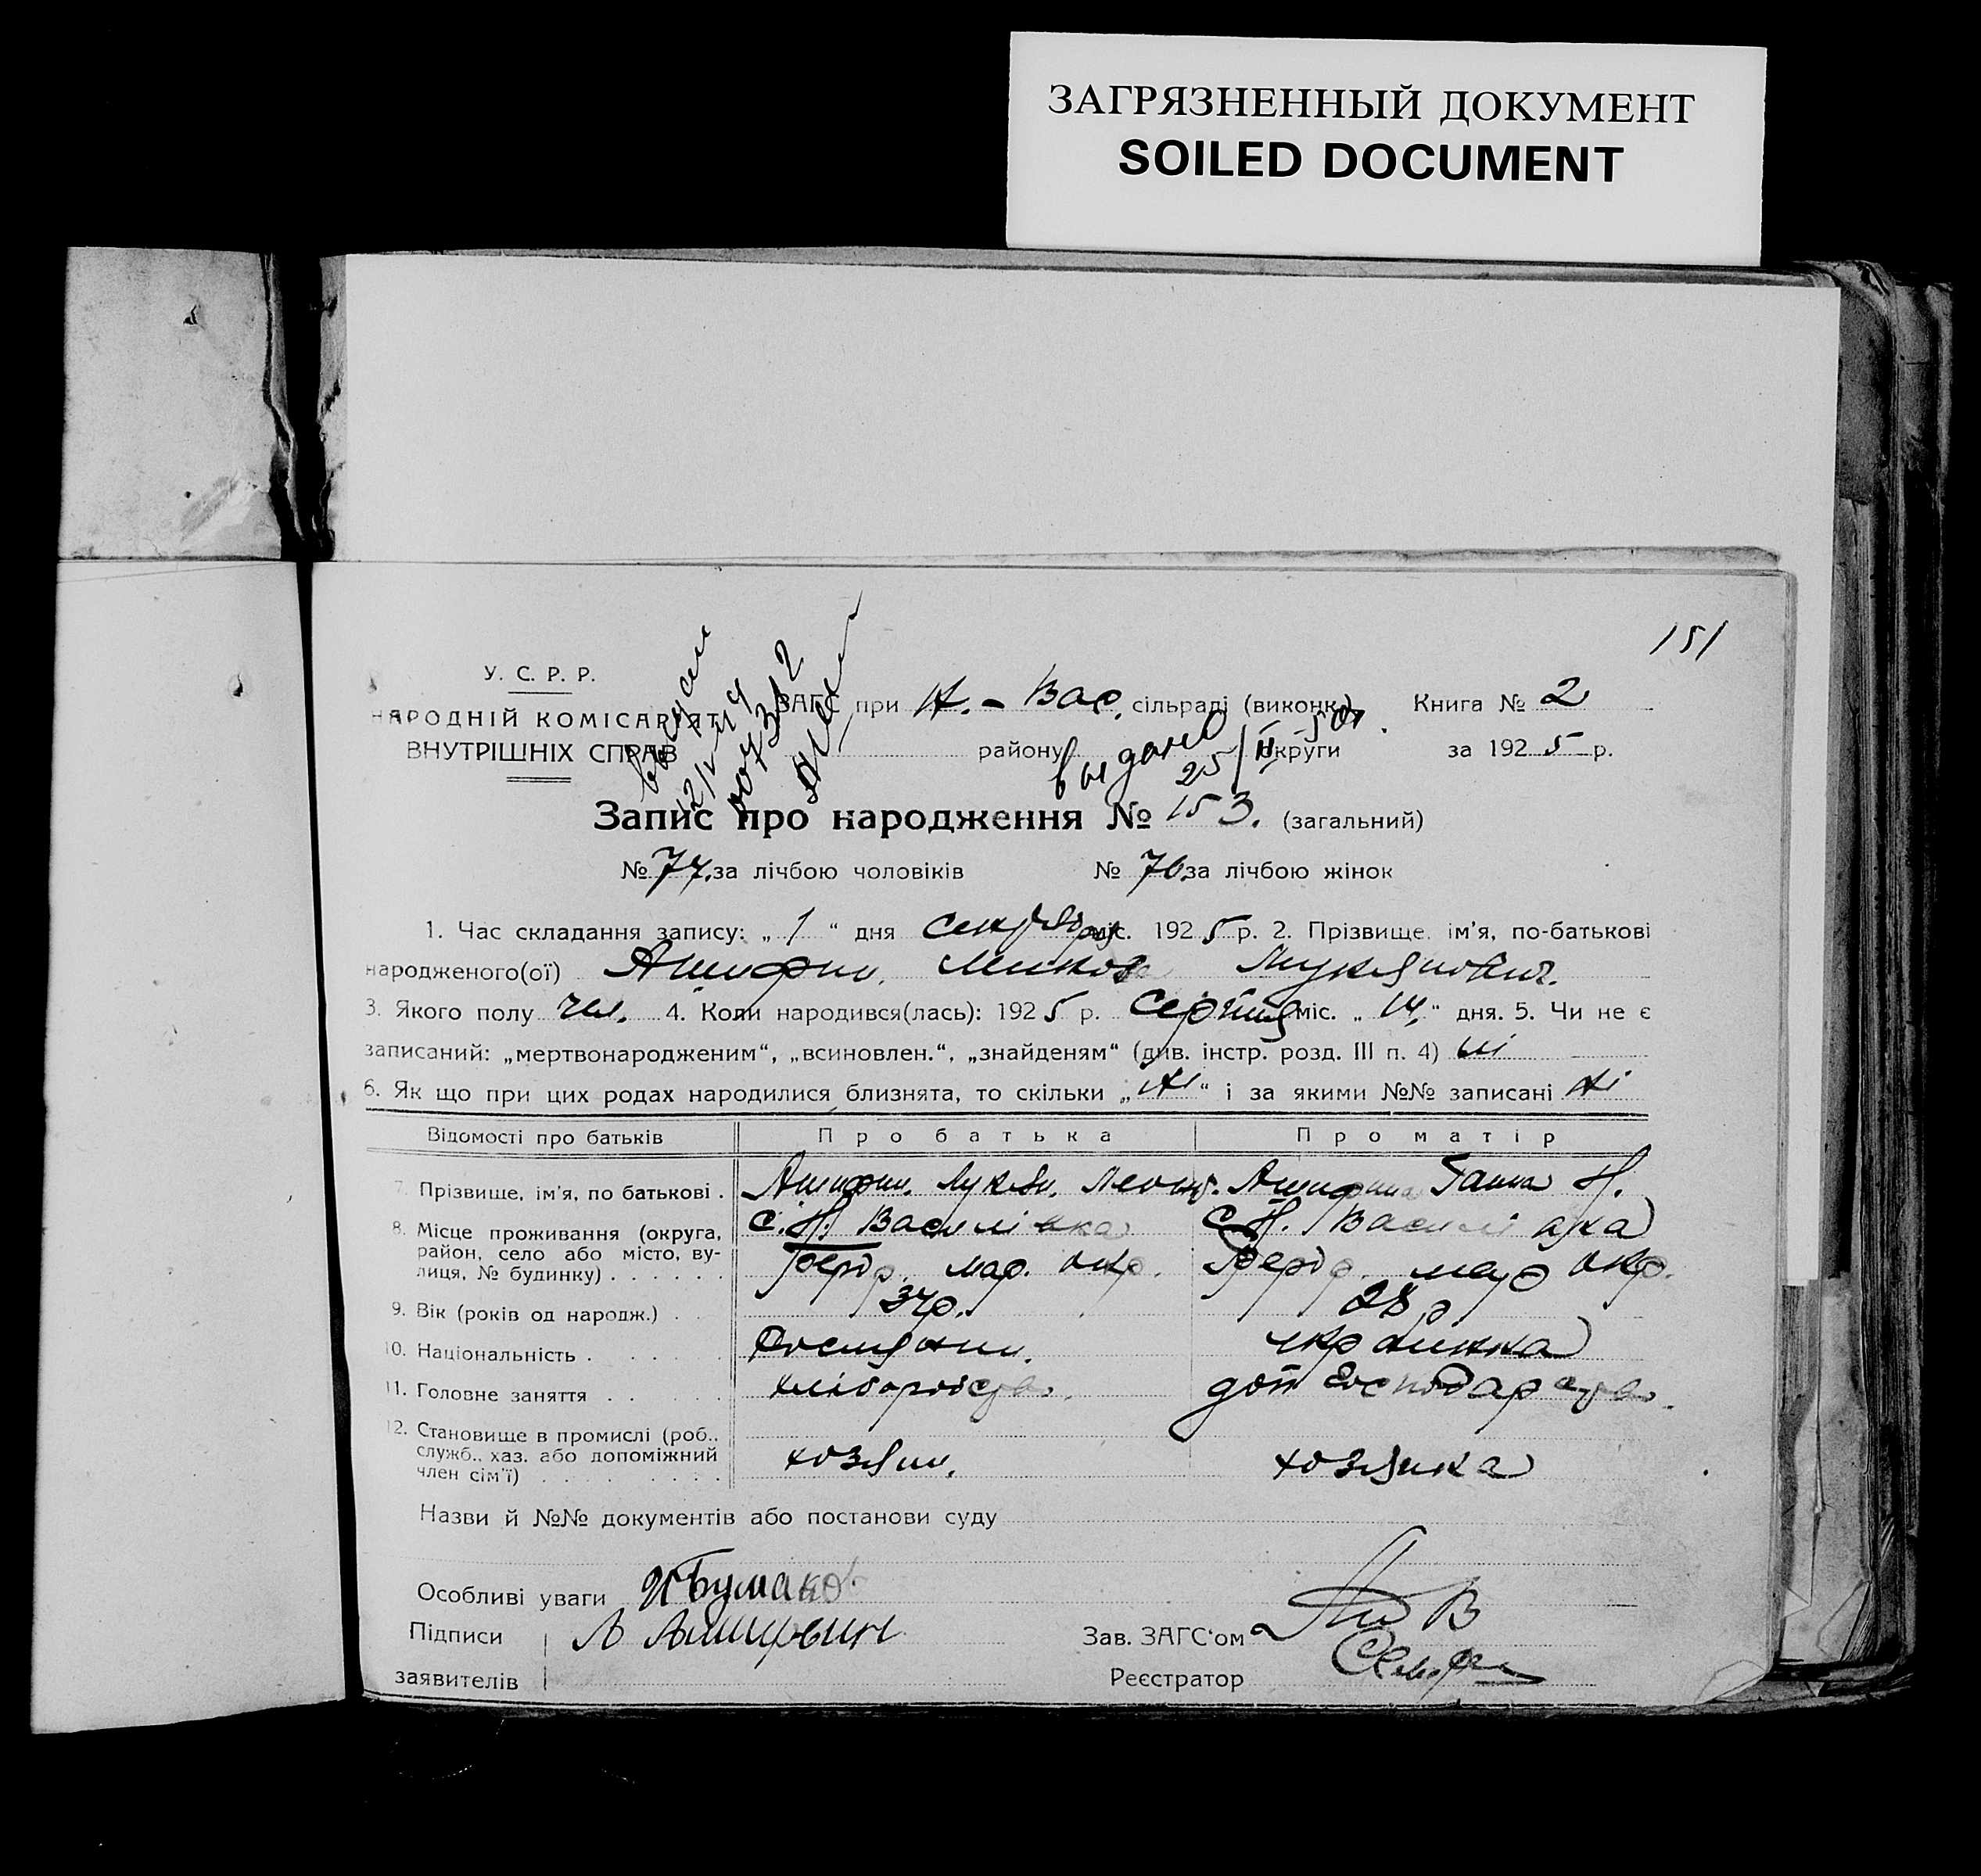 ЗАГРЯЗНЕННЫЙ ДОКУМЕНТ
SOILED DOCUMENT
151
У. С. Р. Р.
НАРОДНІЙ КОМІСАРІЯТ
ВНУТРІШНІХ СПРАВ
ЗАГС при Н.-Вас. сільраді (виконк.) Книга № 2
району округи за 1925 р.
выдано 25/II
Запис про народження № 153. (загальний)
№ 77. за лічбою чоловіків № 76. за лічбою жінок
1. Час складання запису: „ 1 “ дня міс. 1925 р. 2. Прізвище, ім'я, по-батькові
народженого(ої) Микола Лукянович.
3. Якого полу чол. 4. Коли народився(лась): 1925 р. Серпня міс. „ 14. “ дня. 5. Чи не є
записаний: „мертвонародженим“, „всиновлен.“, „знайденям“ (див. інстр. розд. III п. 4) ні
6. Як що при цих родах народилися близнята, то скільки „ Ні “ і за якими №№ записані Ні
Відомості про батьків Про батька Про матір
7. Прізвище, ім'я, по батькові . Лукян. Леонт. Ганна Н.
8. Місце проживання (округа, район, село або місто, вулиця, № будинку) . . . . . . с. Н. Василівка мар. окр. с. Н. Василівка мар окр.
9. Вік (років од народж.) . . 37р. 28 р
10. Національність . . . . . . українка
11. Головне заняття . . . . . хліборобство. дом господарство.
12. Становище в промислі (роб., служб., хаз. або допоміжний член сім'ї) . . . . . . . . хозяин. хозяйка
Назви й №№ документів або постанови суду
Особливі уваги
Підписи
заявителів
Зав. ЗАГС'ом
Реєстратор